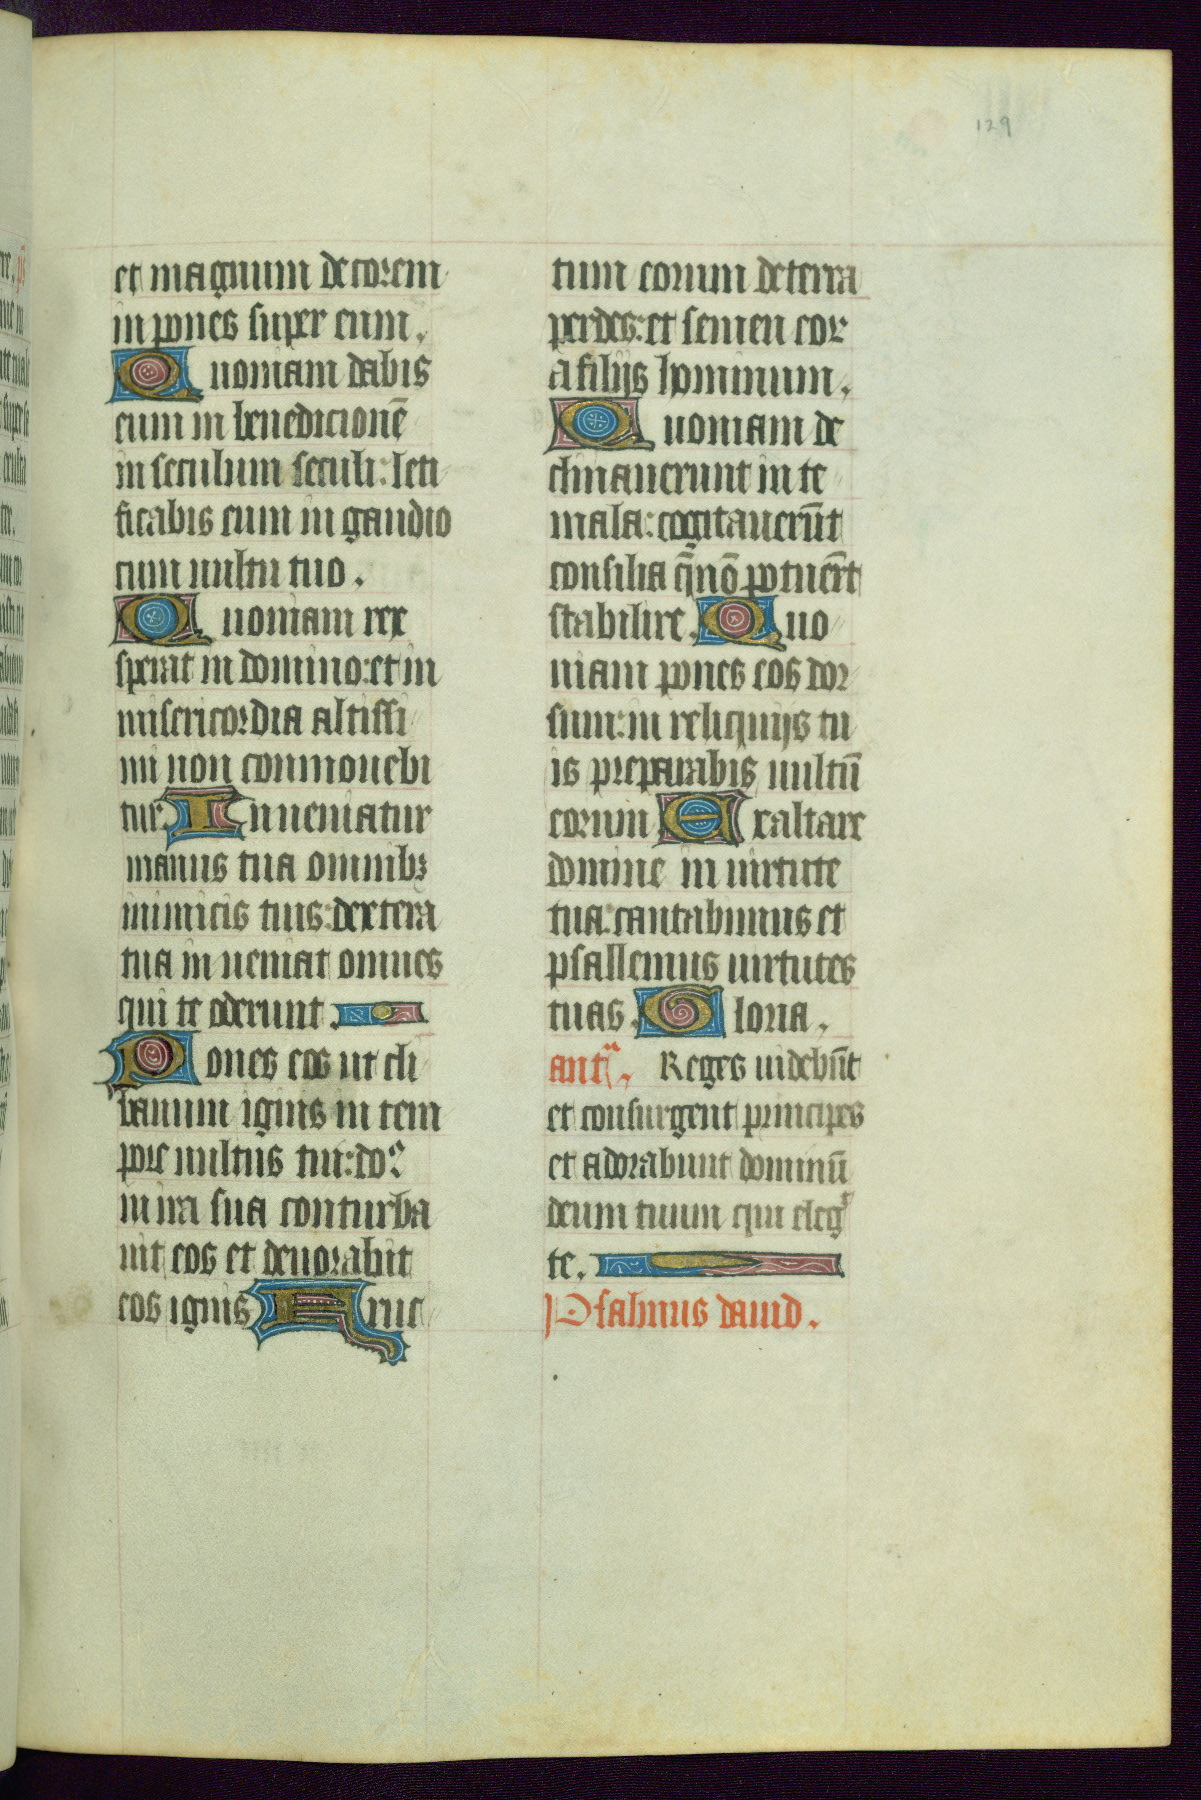 129
et magnum decorem
in pones super eum.
Quoniam dabis
eum in benedicionē
in seculum seculi: leti
ficabis eum in gaudio
cum uultu tuo.
Quoniam rex
sperat in domino: et in
misericordia altissi
mi non conmouebi
tur. Inueniatur
manus tua omnibꝫ
inimicis tuis: dextera
tua in ueniat omnes
qui te oderunt.
Pones eos ut cli
banum ignis in tem
pore uultus tui: do⁹
in ira sua conturba
uit eos et deuorabit
eos ignis Fruc
tum eorum de terra
perdes: et semen eor
a filijs hominum.
Quoniam de
clinauerunt in te
mala: cogitauerūt
consilia q̄ nō potuēr̄t
stabilire. Quo
niam pones eos dor
sum: in reliquijs tu
is preparabis uultū
eorum Exaltare
domine in uirtute
tua: cantabimus et
psallemus uirtutes
tuas. Gloria.
antᵃ. Reges uidebūt
et consurgent principes
et adorabunt dominū
deum tuum qui eleg͛
te.
Psalmus dauid.